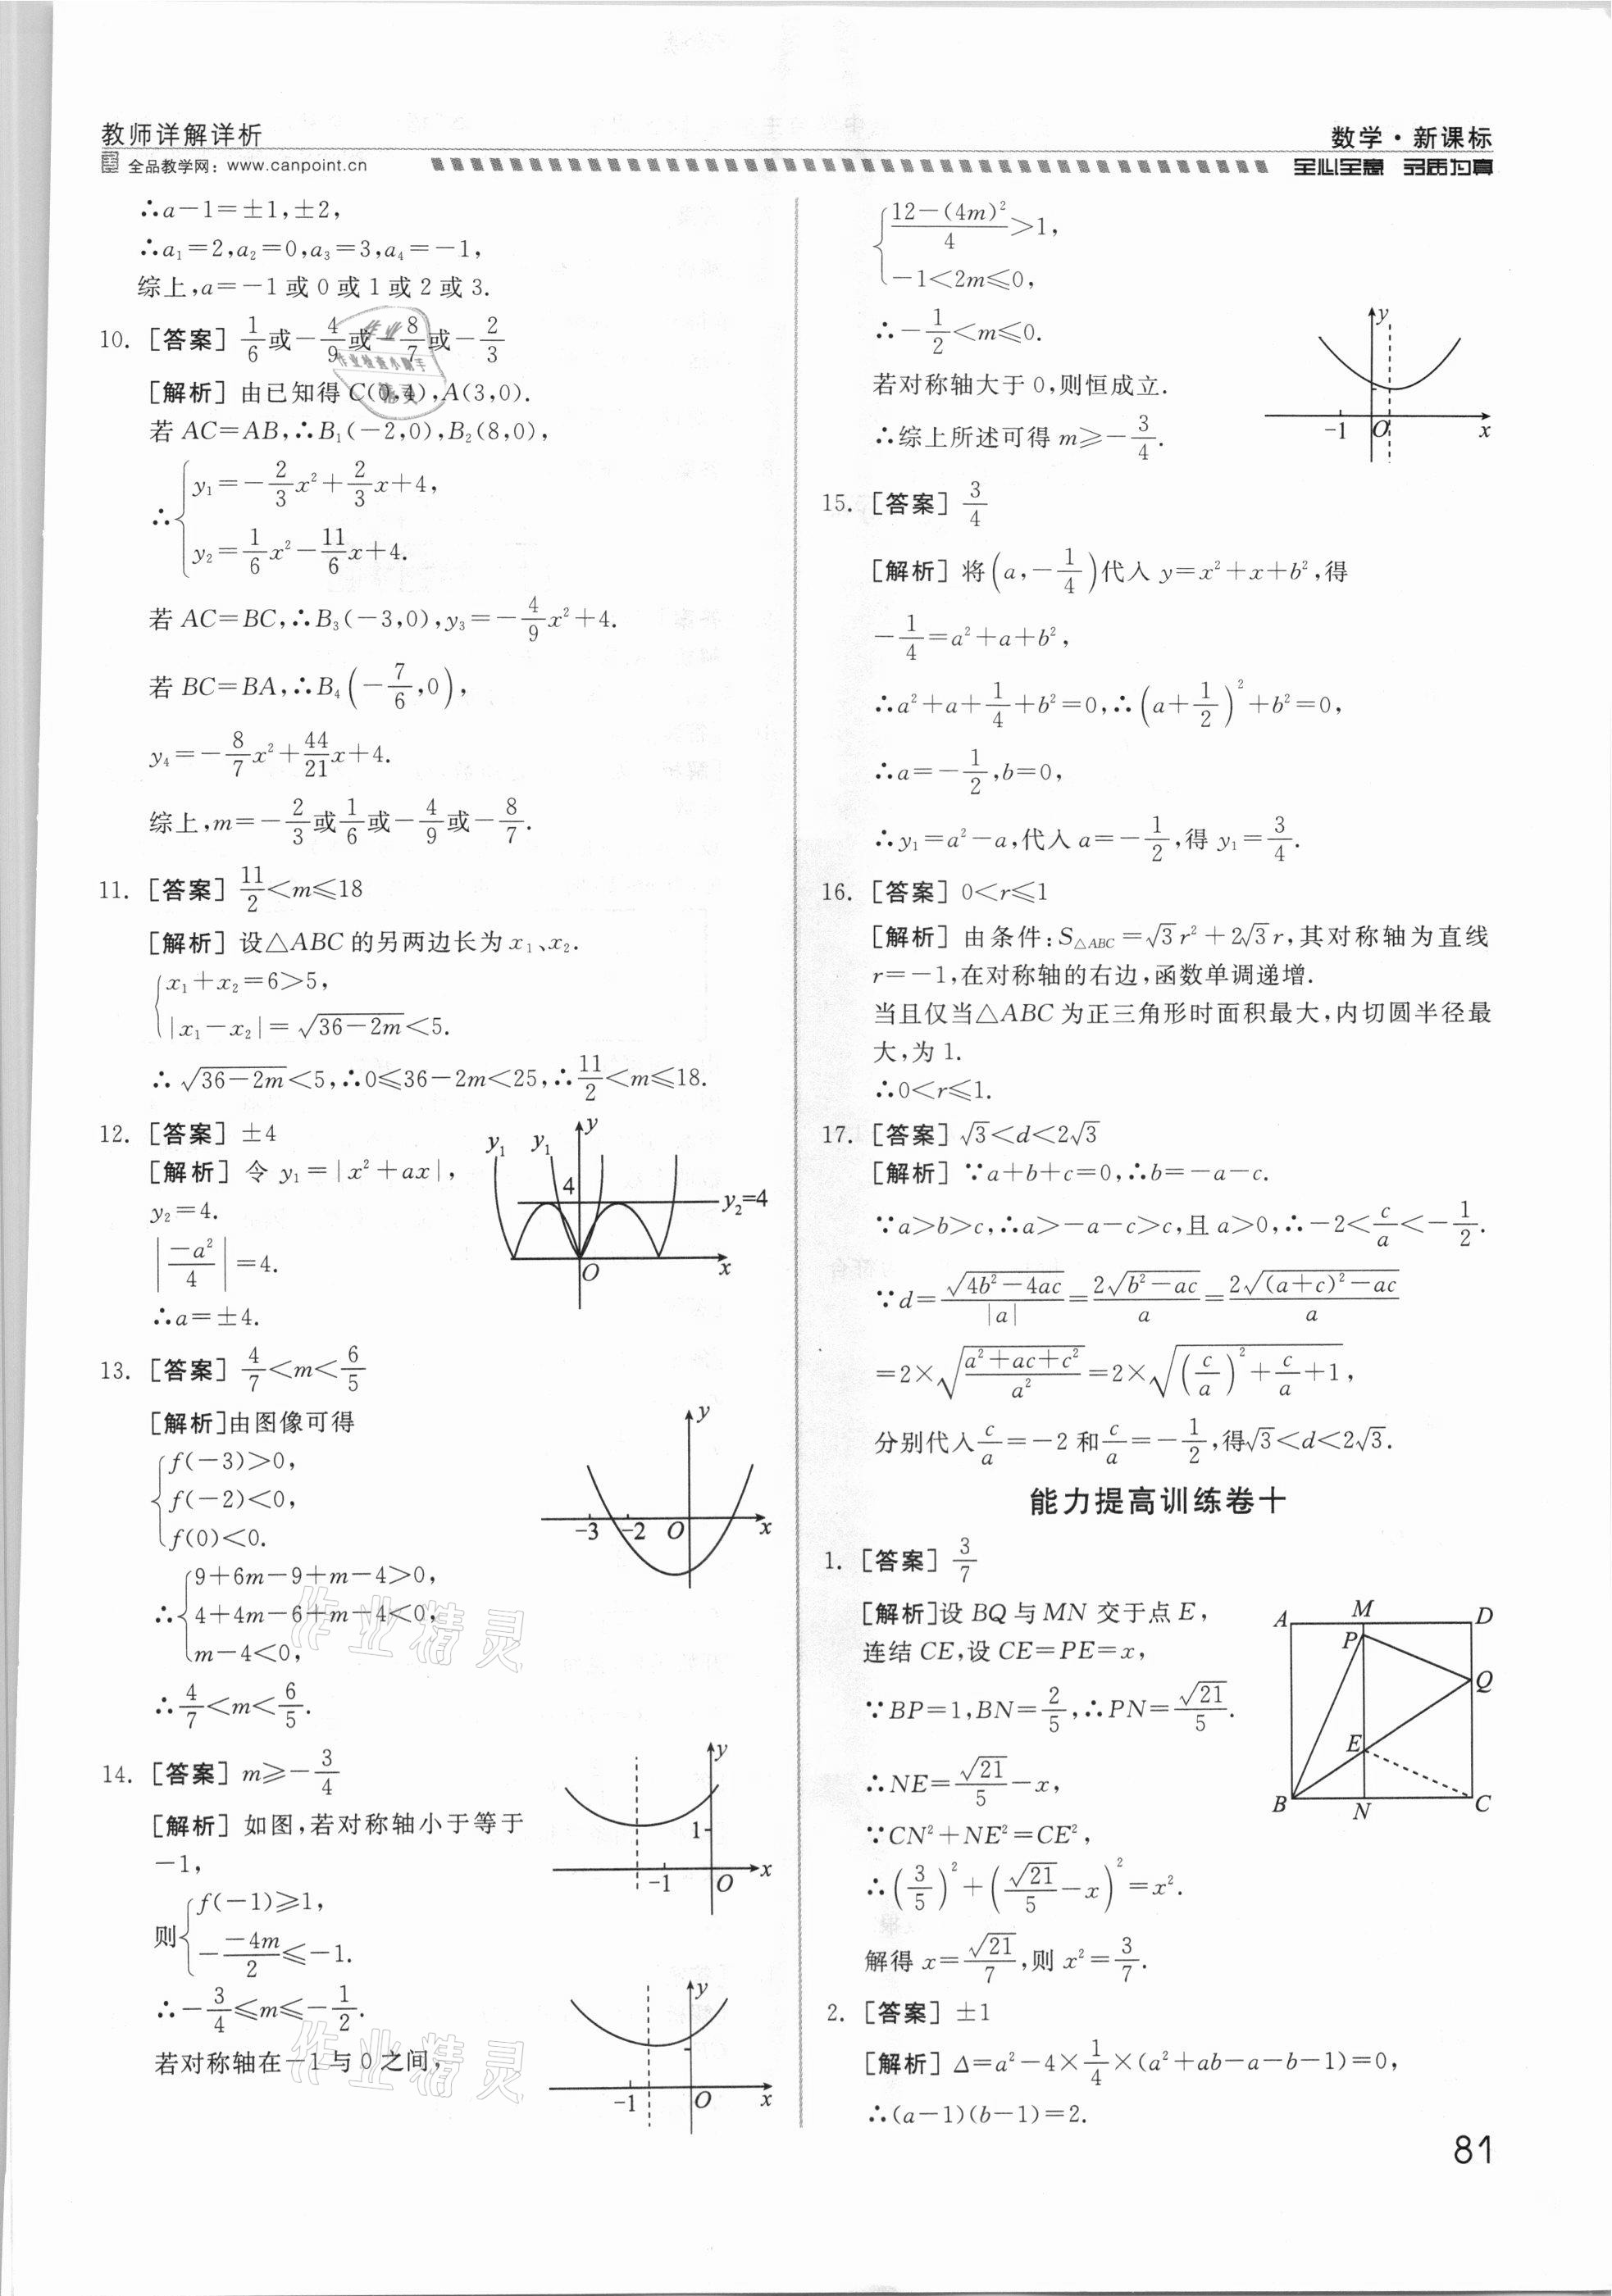 教师详解详析
数学·新课标
全品教学网：www.canpoint.cn
全心全意 名质为真
∴a－1＝±1,±2,
∴a₁＝2,a₂＝0,a₃＝3,a₄＝－1,
综上,a＝－1或0或1或2或3.
10. [答案] 1/6或－4/9或－8/7或－2/3
[解析] 由已知得C(0,4),A(3,0).
若AC＝AB,∴B₁(－2,0),B₂(8,0),
∴{y₁＝－2/3x²＋2/3x＋4,
y₂＝1/6x²－11/6x＋4.
若AC＝BC,∴B₃(－3,0),y₃＝－4/9x²＋4.
若BC＝BA,∴B₄(－7/6,0),
y₄＝－8/7x²＋44/21x＋4.
综上,m＝－2/3或1/6或－4/9或－8/7.
11. [答案] 11/2＜m≤18
[解析] 设△ABC的另两边长为x₁、x₂.
{x₁＋x₂＝6＞5,
|x₁－x₂|＝√(36－2m)＜5.
∴√(36－2m)＜5,∴0≤36－2m＜25,∴11/2＜m≤18.
12. [答案] ±4
[解析] 令y₁＝|x²＋ax|,
y₂＝4.
|－a²/4|＝4.
∴a＝±4.
y₁ y₁ y
4
y₂=4
O x
13. [答案] 4/7＜m＜6/5
[解析]由图像可得
{f(－3)＞0,
f(－2)＜0,
f(0)＜0.
y
－3 －2 O x
∴{9＋6m－9＋m－4＞0,
4＋4m－6＋m－4＜0,
m－4＜0,
∴4/7＜m＜6/5.
14. [答案] m≥－3/4
[解析] 如图,若对称轴小于等于
－1,
则{f(－1)≥1,
－(－4m)/2≤－1.
∴－3/4≤m≤－1/2.
若对称轴在－1与0之间,
y
1
－1 O x
y
－1 O x
{(12－(4m)²)/4＞1,
－1＜2m≤0,
∴－1/2＜m≤0.
若对称轴大于0,则恒成立.
∴综上所述可得m≥－3/4.
y
－1 O x
15. [答案] 3/4
[解析] 将(a,－1/4)代入y＝x²＋x＋b²,得
－1/4＝a²＋a＋b²,
∴a²＋a＋1/4＋b²＝0,∴(a＋1/2)²＋b²＝0,
∴a＝－1/2,b＝0,
∴y₁＝a²－a,代入a＝－1/2,得y₁＝3/4.
16. [答案] 0＜r≤1
[解析] 由条件:S△ABC＝√3r²＋2√3r,其对称轴为直线
r＝－1,在对称轴的右边,函数单调递增.
当且仅当△ABC为正三角形时面积最大,内切圆半径最
大,为1.
∴0＜r≤1.
17. [答案] √3＜d＜2√3
[解析] ∵a＋b＋c＝0,∴b＝－a－c.
∵a＞b＞c,∴a＞－a－c＞c,且a＞0,∴－2＜c/a＜－1/2.
∵d＝√(4b²－4ac)/|a|＝2√(b²－ac)/a＝2√((a＋c)²－ac)/a
＝2×√((a²＋ac＋c²)/a²)＝2×√((c/a)²＋c/a＋1),
分别代入c/a＝－2和c/a＝－1/2,得√3＜d＜2√3.
能力提高训练卷十
1. [答案] 3/7
[解析]设BQ与MN交于点E,
连结CE,设CE＝PE＝x,
∵BP＝1,BN＝2/5,∴PN＝√21/5.
∴NE＝√21/5－x,
∵CN²＋NE²＝CE²,
∴(3/5)²＋(√21/5－x)²＝x².
解得x＝√21/7,则x²＝3/7.
A M D
P
Q
E
B N C
2. [答案] ±1
[解析] Δ＝a²－4×1/4×(a²＋ab－a－b－1)＝0,
∴(a－1)(b－1)＝2.
81
作业
作业检查小助手
精灵
作业精灵
作业精灵